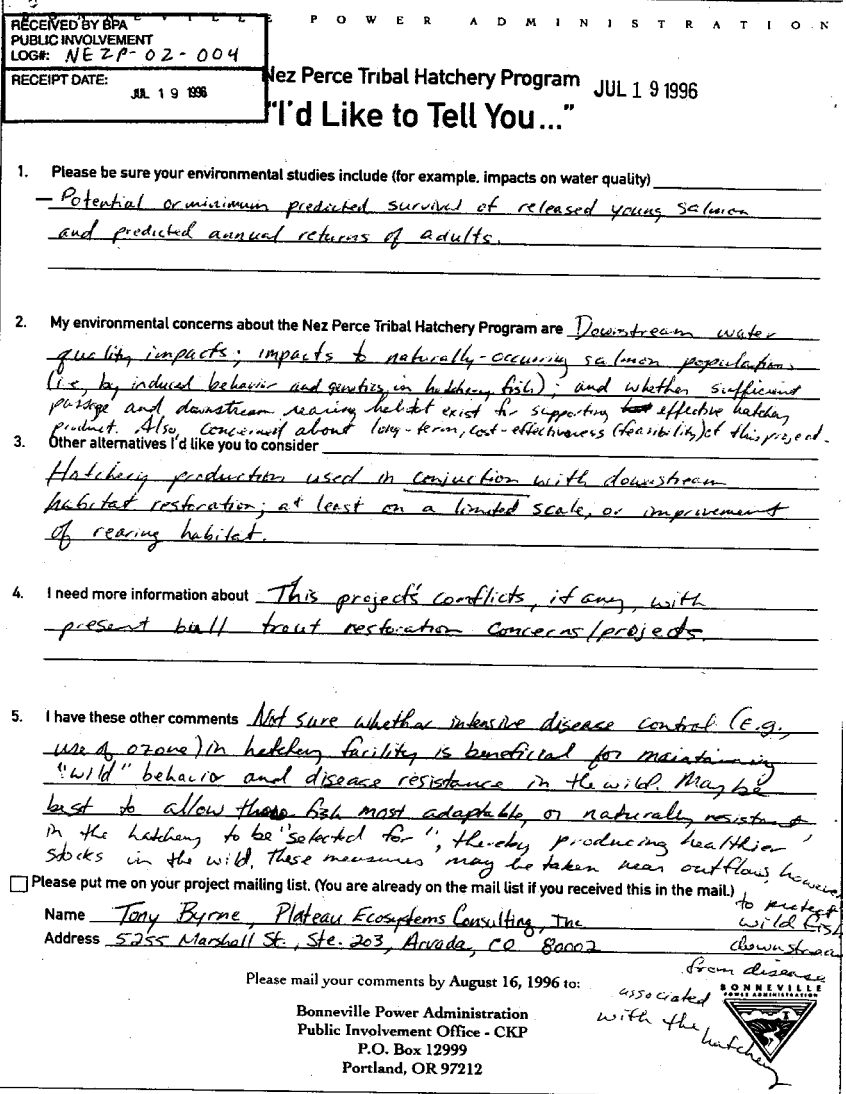 V I L L E P O W E R A D M I N I S T R A T I O N
RECEIVED BY BPA
PUBLIC INVOLVEMENT
LOG#: NEZP-02-004
RECEIPT DATE:
JUL 19 1996
Nez Perce Tribal Hatchery Program JUL 19 1996
"I'd Like to Tell You..."
1. Please be sure your environmental studies include (for example, impacts on water quality)
- Potential or minimum predicted survival of released young salmon
and predicted annual returns of adults.
2. My environmental concerns about the Nez Perce Tribal Hatchery Program are Downstream water
quality impacts; impacts to naturally-occuring salmon populations
(i.e., by induced behavior and genetics in hatchery fish); and whether sufficient
passage and downstream rearing habitat exist for supporting effective hatchery
product. Also, concerned about long-term, cost-effectiveness (feasibility) of this project.
3. Other alternatives I'd like you to consider
Hatchery production used in conjuction with downstream
habitat restoration; at least on a limited scale, or improvement
of rearing habitat.
4. I need more information about This project's conflicts, if any, with
present bull trout restoration concerns/projects.
5. I have these other comments Not sure whether intensive disease control (e.g.,
use of ozone) in hatchery facility is beneficial for maintaining
"wild" behavior and disease resistance in the wild. May be
best to allow those fish most adaptable, or naturally resistant
in the hatchery to be "selected for", thereby producing healthier
stocks in the wild. These measures may be taken near outflows, however,
to protect
wild fish
downstream
from disease
associated
with the hatchery
Please put me on your project mailing list. (You are already on the mail list if you received this in the mail.)
Name Tony Byrne, Plateau Ecosystems Consulting, Inc
Address 5255 Marshall St., Ste. 203, Arvada, CO 80002
Please mail your comments by August 16, 1996 to:
Bonneville Power Administration
Public Involvement Office - CKP
P.O. Box 12999
Portland, OR 97212
BONNEVILLE
POWER ADMINISTRATION